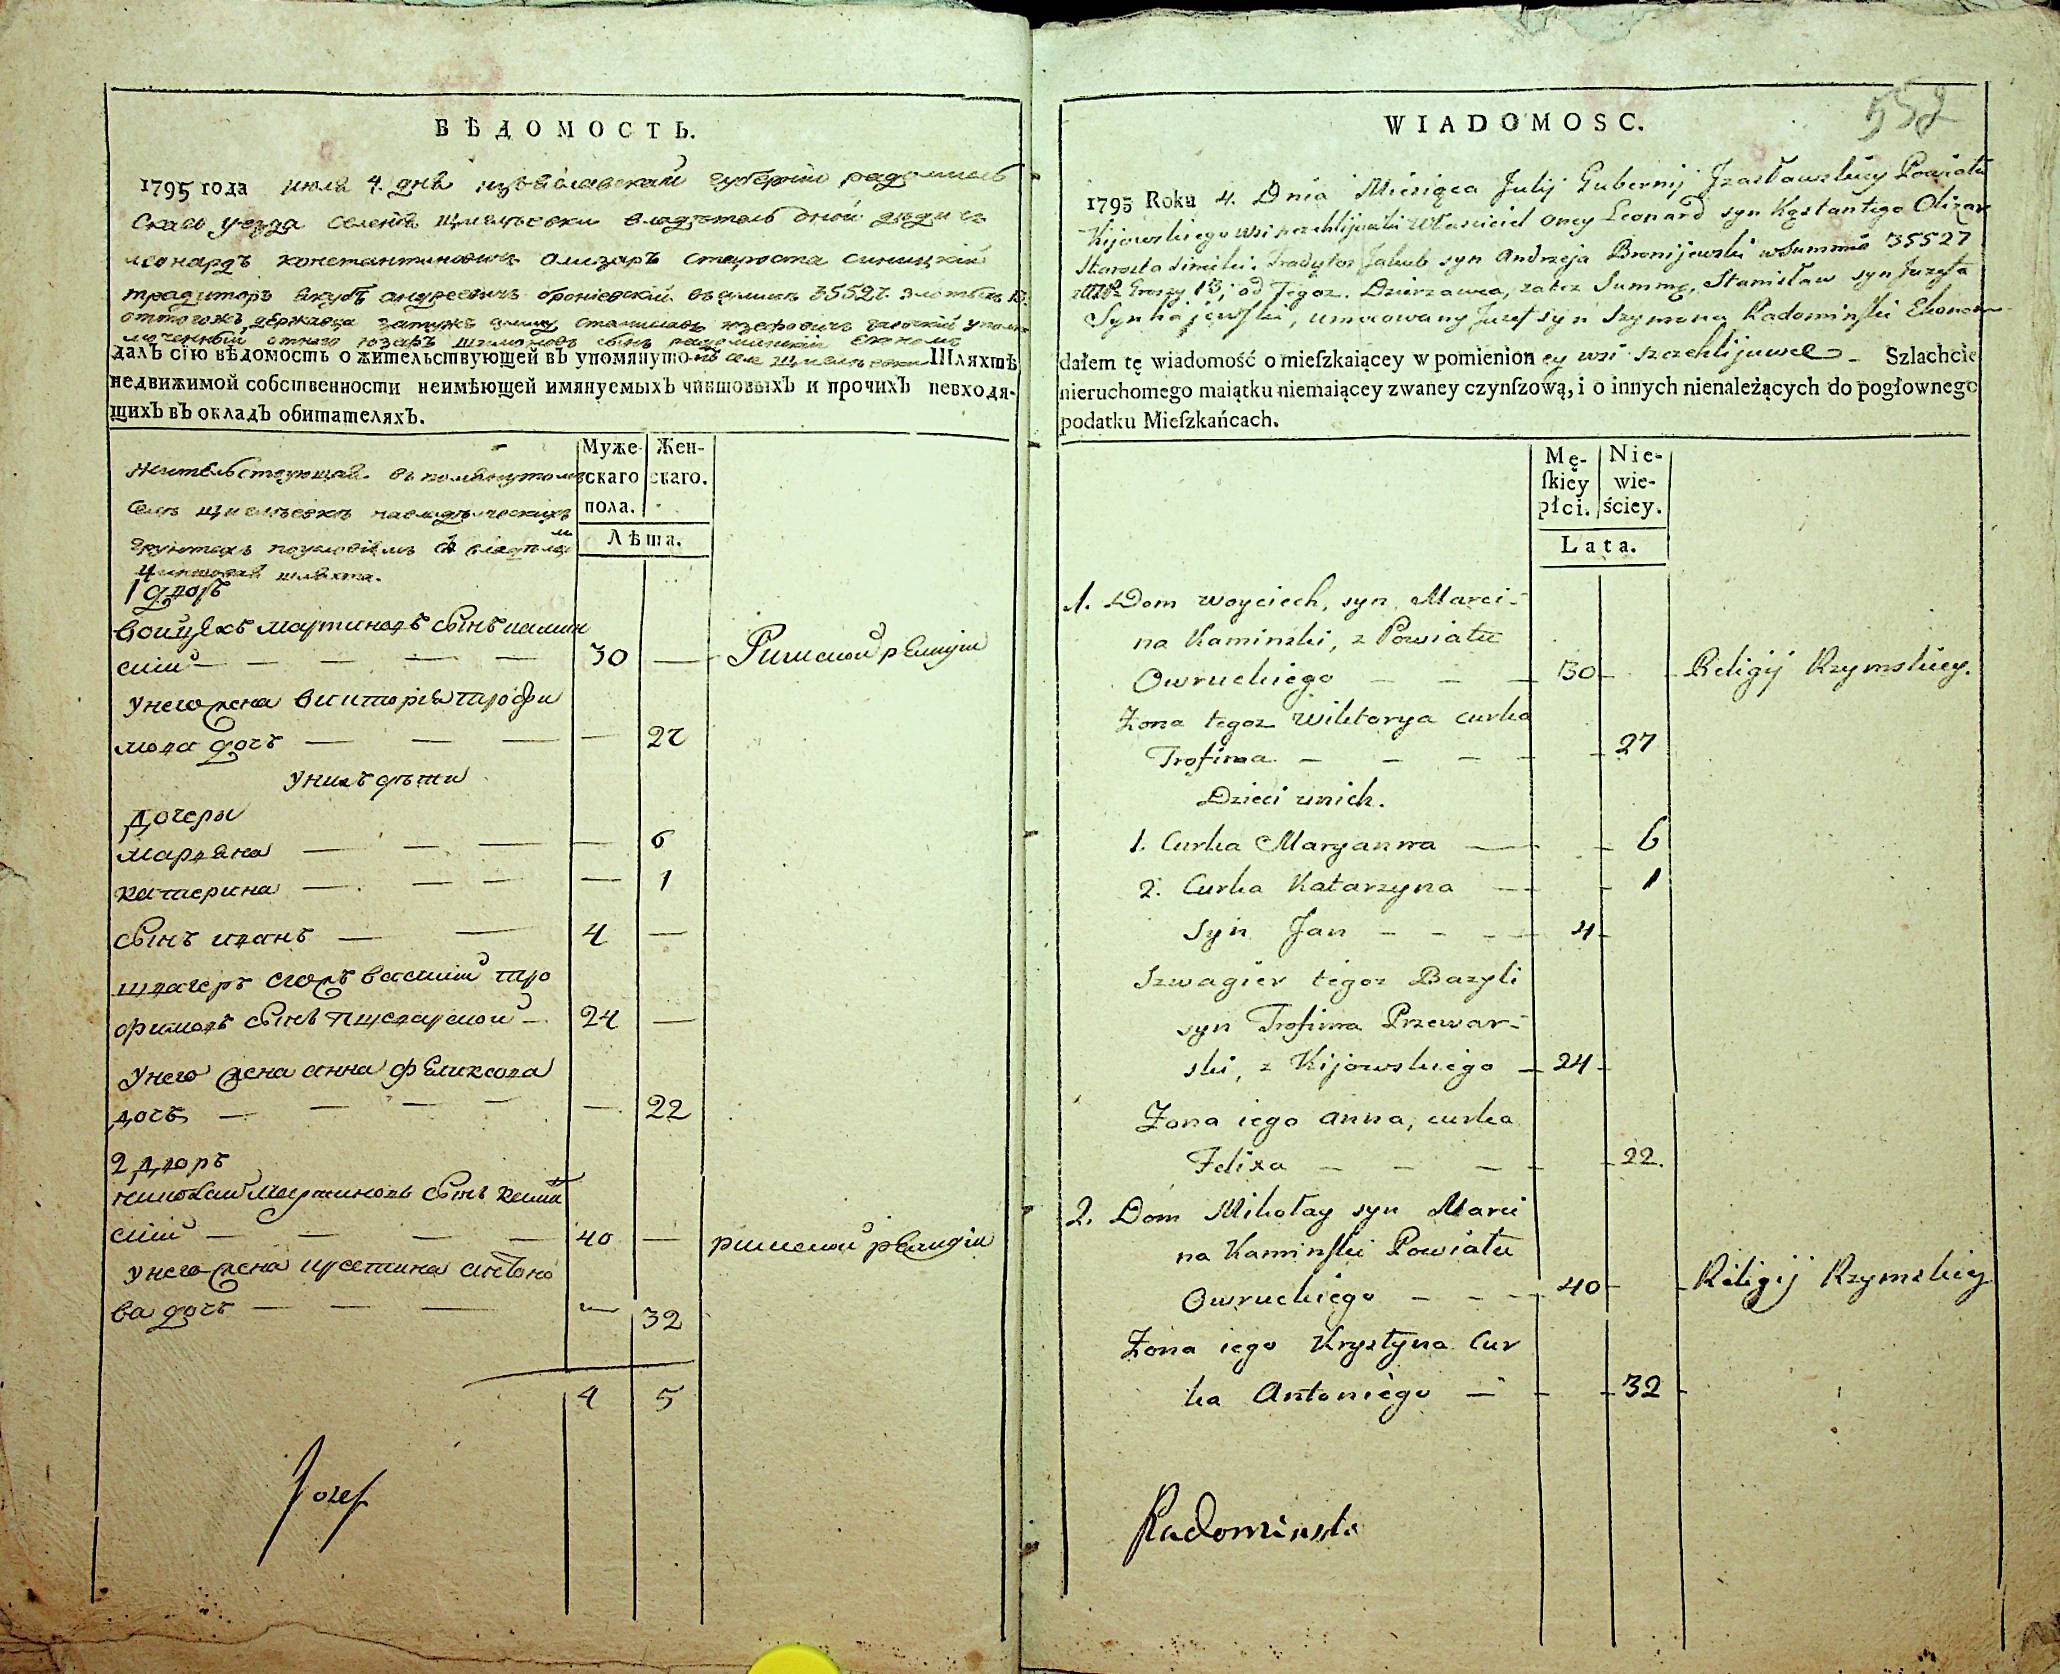 ВѢДОМОСТЬ.
1795 года июля 4. дня изѣяславской губернии радомысль
скаго уезда селения владѣтель оной дѣдичъ
леонардъ константиновичъ олизаръ староста синицкій
традиторъ якубъ андреевичъ броніевскій въ сумми 35527 злотыхъ 13
оттогожъ державца затужъ сумму станиславъ юзефовичъ упол
моченный отного юзефъ шимоновъ сынъ радоминскій економъ
далъ сію вѣдомость о жительствующей въ упомянуто мъ селе Шляхтѣ,
недвижимой собственности неимѣющей имянуемыхъ чиншовыхъ и прочихъ невходя-
щихъ въ окладъ обитателяхъ.
Муже- Жен-
скаго скаго.
пола.
Лѣта.
жительствующая въ помянутомъ
селе наследическихъ
грунтахъ поусловіямъ съ владѣлцами
чиншовая шляхта.
1 дворъ
войцехъ мартиновъ сынъ камин
скій — — — — 30 — Римской религіи
унего жена викторія трофи
мова дочъ — — — — 27
унихъ дѣти
дочеры
марьяна — — — — 6
катерина — — — — 1
сынъ иванъ — — 4 —
швагеръ егожъ василій тро
фимовъ сынъ пшеварской — 24 —
унего жена анна феликсова
дочъ — — — — — 22
2 дворъ
николай мартиновъ сынъ камин
скій — — — — 40 — римской религіи
унего жена крестина антоно
ва дочъ — — — — 32
4 5
Jozef
552
WIADOMOSC.
1795 Roku 4. Dnia Miesiąca Julij Gubernij Jzasławskiey Powiatu
Kijowskiego wsi szczehlijowki Własciciel oney Leonard syn Kąstantego Olizar
Starosta sinicki. Tradytor Jakub syn Andrzeja Bronijewski w Summie 35527
Groszy 13; od Tegoz. Dzierzawca, zatez Summę, Stanisław syn Juzefa
umocowany Juzef syn Szymona Radominski Ekonom
dałem tę wiadomość o mieſzkaiącey w pomienion ey wsi szczehlijuwce — Szlachcie
nieruchomego maiątku niemaiącey zwaney czynſzową, i o innych nienależących do pogłownego
podatku Mieſzkańcach.
Mę- Nie-
ſkiey wie-
płci. ściey.
Lata.
1. Dom woyciech, syn Marci-
na Kaminski, z Powiatu
Owruckiego — — — 30 — Religij Rzymskiey.
Zona tegoz Wiktorya curka
Trofima — — — — 27
Dzieci unich.
1. Curka Maryanna — — 6
2. Curka Katarzyna — — 1
Syn Jan — — — 4 —
Szwagier tegoz Bazyli
syn Trofima Przewar-
ski, z Kijowskiego — 24 —
Zona iego anna, curka
Felixa — — — — 22.
2. Dom Mikołay syn Marci
na Kaminſki Powiatu
Owruckiego — — — 40 — Religij Rzymskiey
Zona iego Krystyna Cur
ka Antoniego — — — 32 —
Radominski